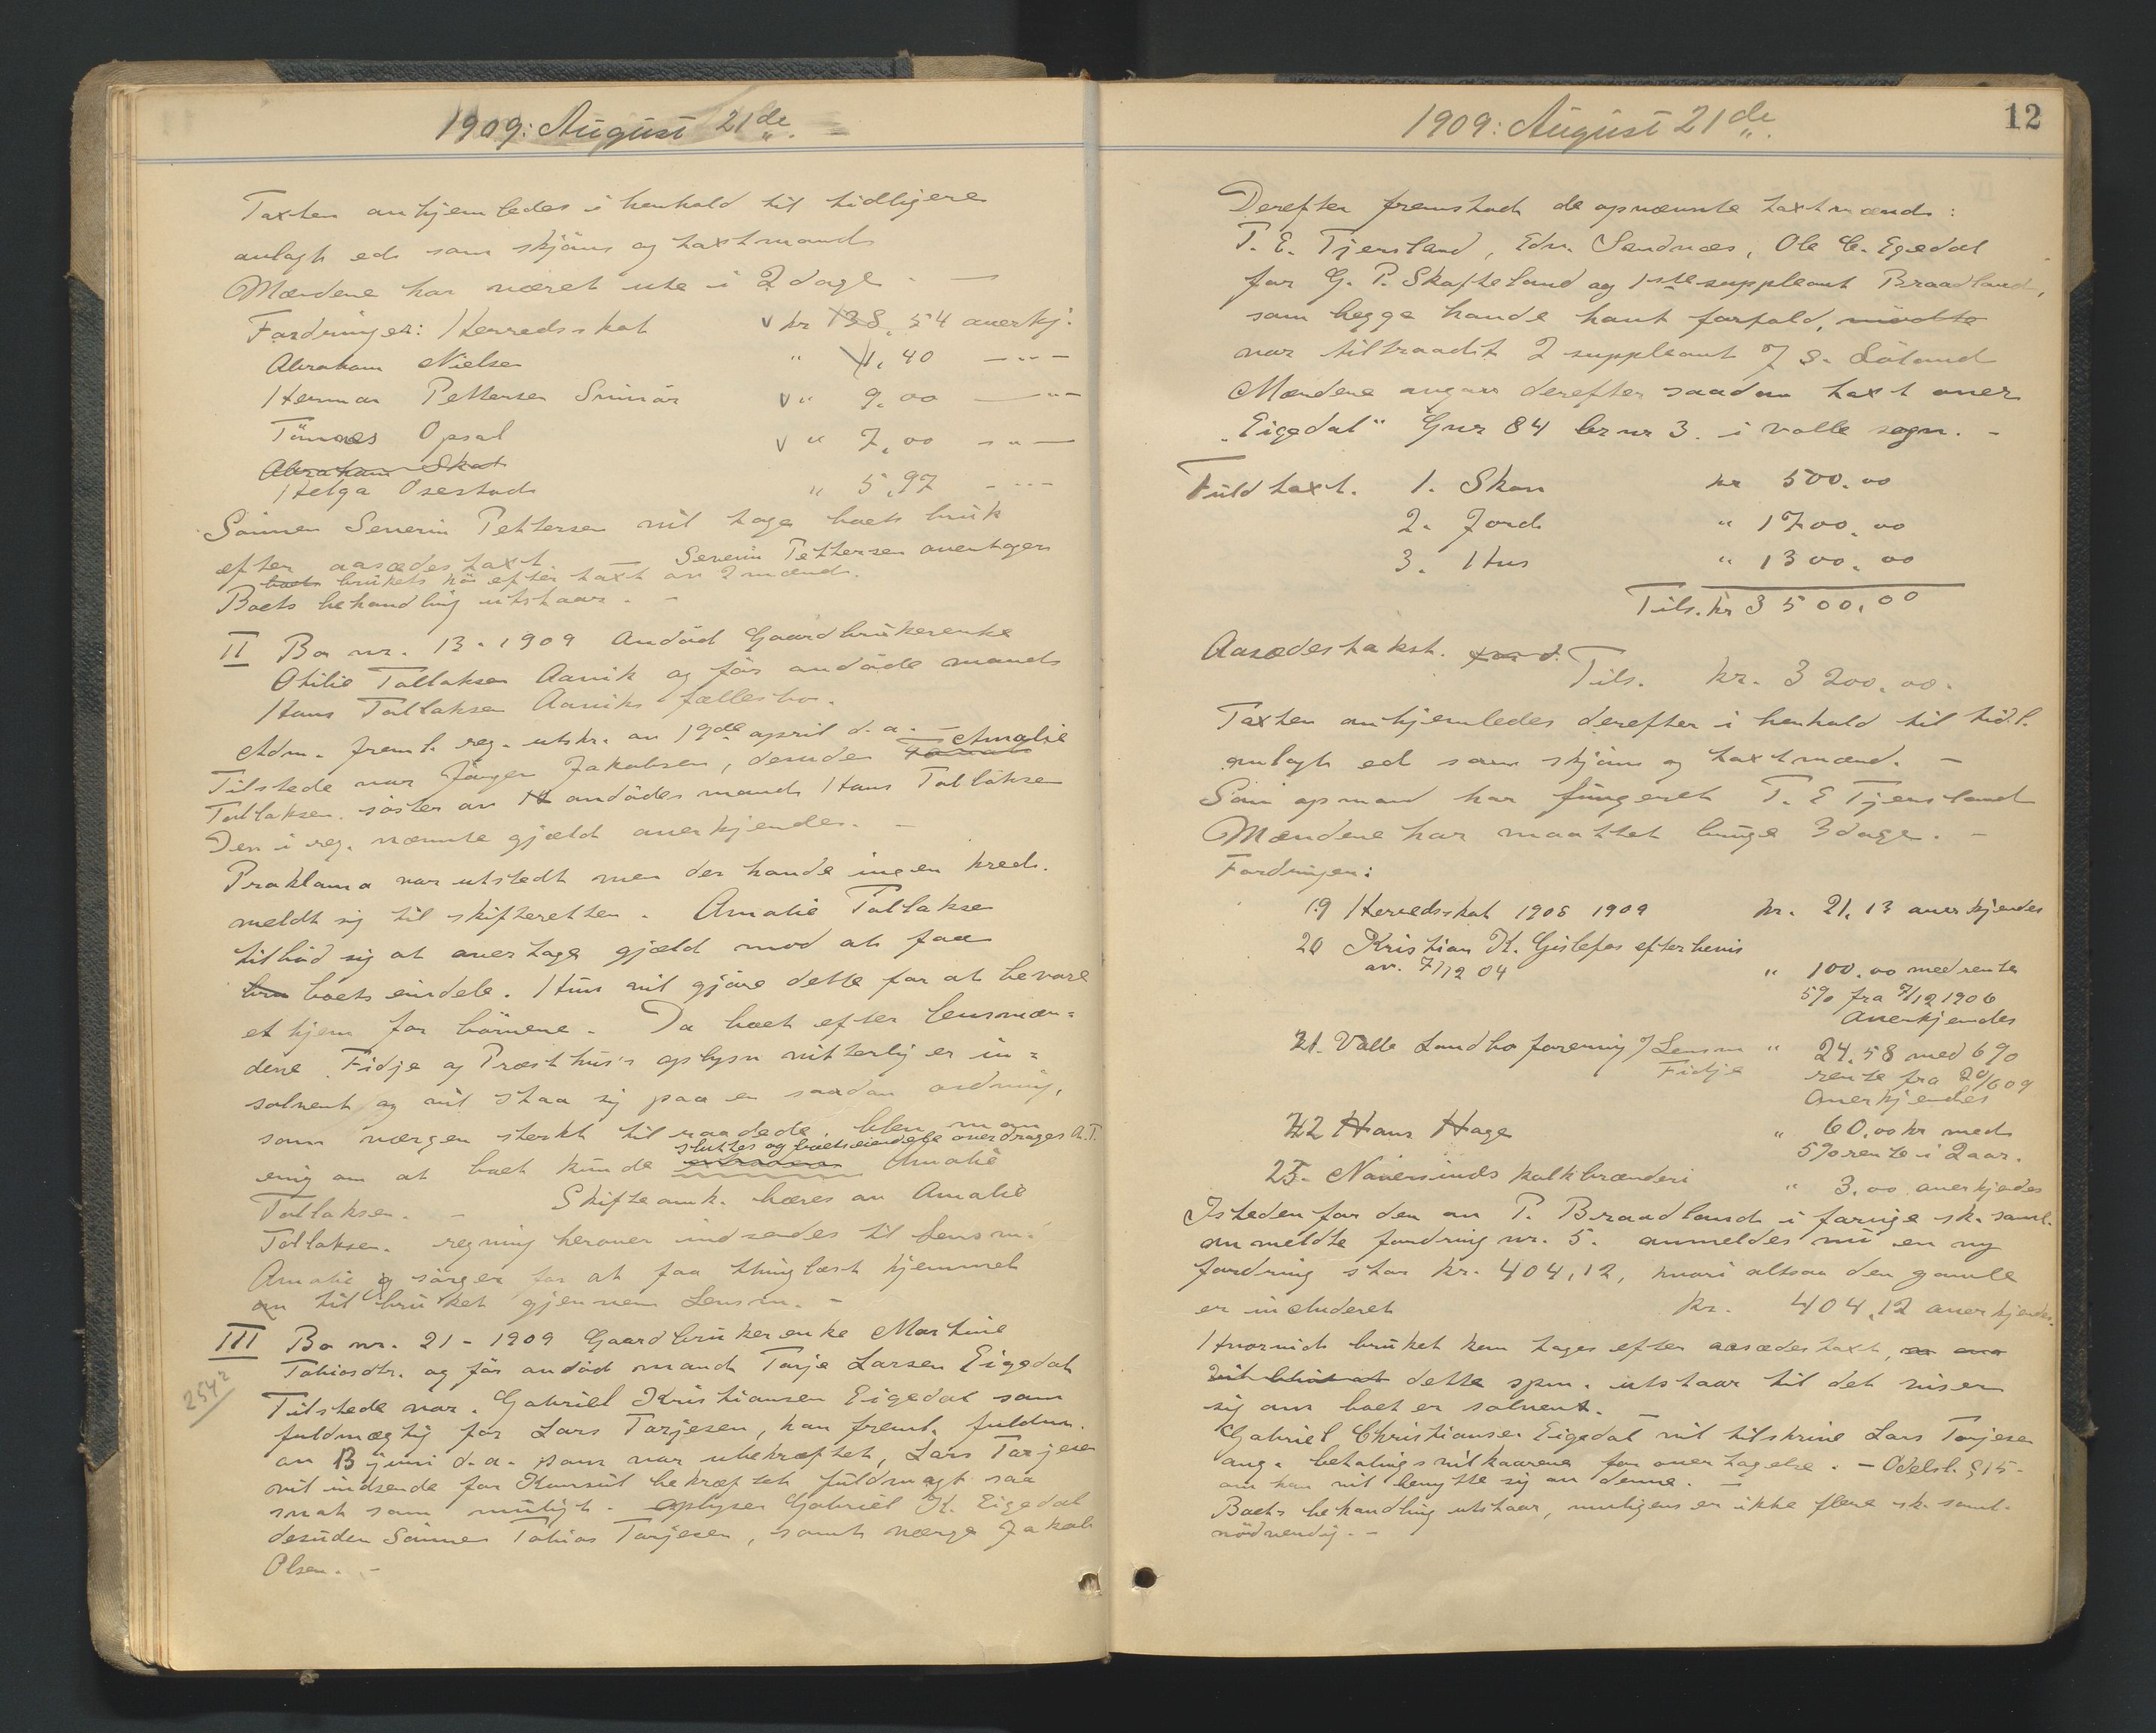 1909: August 21de.
Taxten anhjemledes i henhold til tidligere
avlagt ed som skjöns og taxtmænd
Mændene har været ute i 2 dage. —
Fordringer: Herredsskat v kr 138,54 anerkj.
Abraham Nielsen " 1,40 — " —
Herman Pettersen v " 9,00 — " —
Tönnes Opsal v " 7,00 — " —
Abraham Skat
Helga Osestad " 5,97 — " —
Sönnen Severin Pettersen vil tage boets bruk
efter aasædestaxt. — Severin Pettersen overtager
boets brukets hö efter taxt av 2 mænd.
Boets behandling utstaar. —
II Bo nr. 13 - 1909 Avdöd Gaardbrukerenke
Otilie Tallaksen Aavik og för avdöde mands
Hans Tallaksen Aaviks fællesbo.
Adm. freml. reg. utskr. av 19de april d.a. — Amalie
Tilstede var Jörgen Jakobsen, desuden
Tallaksen, söster av avdödes mand Hans Tallaksen
Den i reg. nævnte gjæld anerkjendes. —
Proklama var utstedt men der havde ingen kred.
meldt sig til skifteretten. Amalie Tallaksen
tilböd sig at overtage gjæld mod at faa
boets eiendele. Hun vil gjöre dette for at bevare
et hjem for börnene. Da boet efter lensmæn=
dene Fidje og Præsthus's oplysn vitterlig er in=
solvent og vil staa sig paa en saadan ordning,
som værgen sterkt tilraadede, blev man
sluttes og boets eiendele overdrages A.T.
enig om at boet kunde Amalie
Tallaksen. — Skifteomk. bæres av Amalie
Tallaksen. regning herover indsendes til lensm.
Amalie sörger for at faa thinglæst hjemmel
til bruket gjennem Lensm. —
III Bo nr. 21 - 1909 Gaardbrukerenke Martine
Tobiasdtr. og för avdöd mand Tarje Larsen Eigedal
2542
Tilstede var. Gabriel Kristiansen Eigedal som
fuldmægtig for Lars Tarjesen, han freml. fuldm.
av 13 juni d.a. som var ubekræftet, Lars Tarjesen
vil indsende for Konsul bekræftet fuldmagt saa
snat som muligt. oplyser Gabriel K. Eigedal
desuden Sönnen Tobias Tarjesen, samt værge Jakob
Olsen. —
1909: August 21de.
12
Derefter fremstod de opnævnte taxtmænd:
T. E. Tjersland, Edv. Sandnæs, Ole C. Egedal
for G. P. Skafteland og 1ste suppleant Braadland,
som begge havde havt forfald, mödte
var tiltraadt 2 suppleant J S. Löland
Mændene avgav derefter saadan taxt over
„Eigedal" Gnr 84 brnr 3. i Valle sogn. —
Fuld taxt. 1. Skov kr 500.00
2. Jord " 1700.00
3. Hus " 1300.00
Tils. kr 3500,00
Aasædestakst.
Tils. kr. 3200,00.
Taxten anhjemledes derefter i henhold til tidl.
avlagt ed som skjöns og taxtmænd. —
Som opmand har fungeret T. E Tjersland
Mændene har maattet bruge 3 dage. —
Fordringer:
19 Herredsskat 1908 1909 kr. 21,13 anerkjendes
20 Kristian K. Gislefos efter bevis
av. 7/12 04 " 100,00 med rente
5% fra 7/12 1906
Anerkjendes
21. Valle Landboforening v/ Lensm " 24.58 med 6%
Fidje rente fra 20/6 09
Anerkjendes
22 Hans Hage " 60,00 kr med
5% rente i 2 aar.
23. Naversunds kalkbrænderi " 3.00 anerkjedes
Isteden for den av P. Braadland i forrige sk. saml.
anmeldte fordring nr. 5. anmeldes nu en ny
fordring stor kr. 404,12, hvori altsaa den gamle
er includeret kr. 404,12 anerkjendes.
Hvorvidt bruket kan tages efter aasædestaxt,
dette spm. utstaar til det viser
sig om boet er solvent. —
Gabriel Christiansen Eigedal vil tilskrive Lars Tarjesen
ang. betalingsvilkaarene for overtagelse. — Odelsl. § 15 -
om han vil benytte sig av denne. —
Boets behandling utstaar, muligens er ikke flere sk. saml.
nödvendig. —